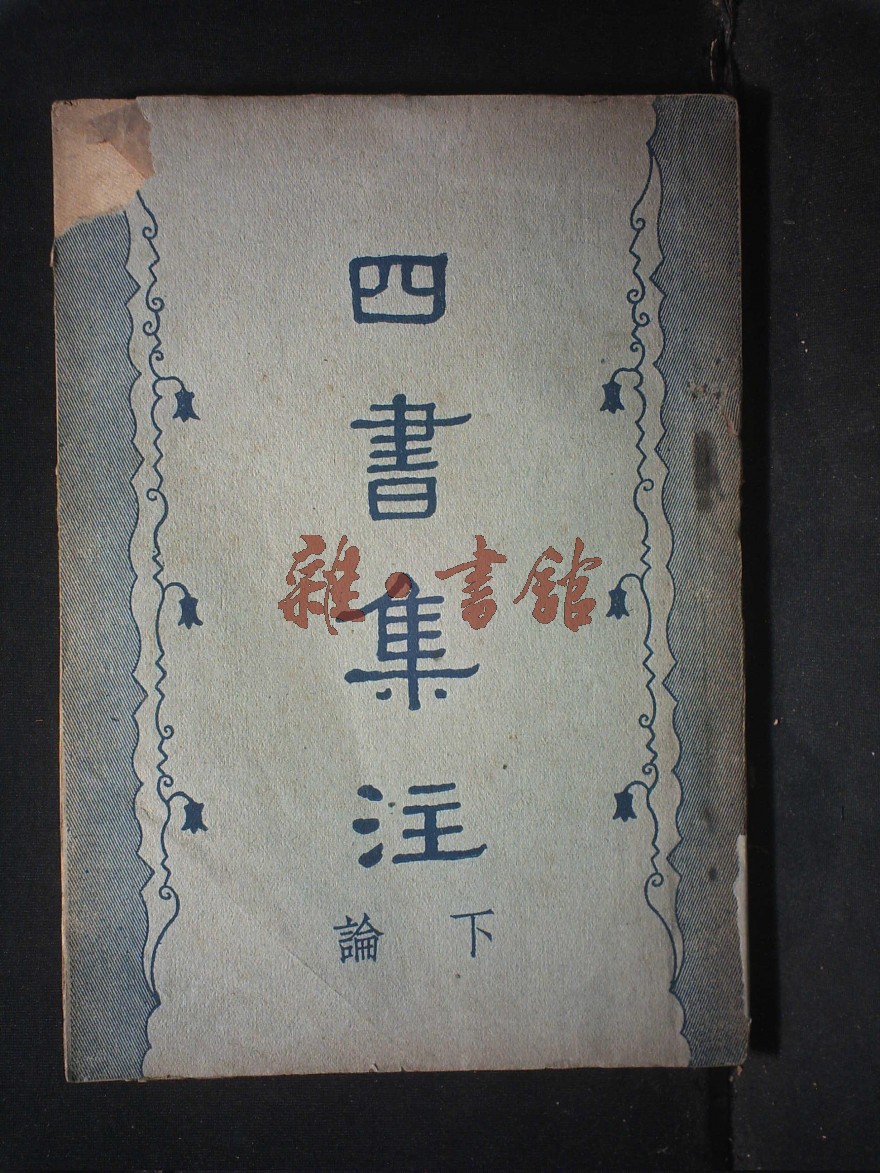 四書集注
下論
雜·書館